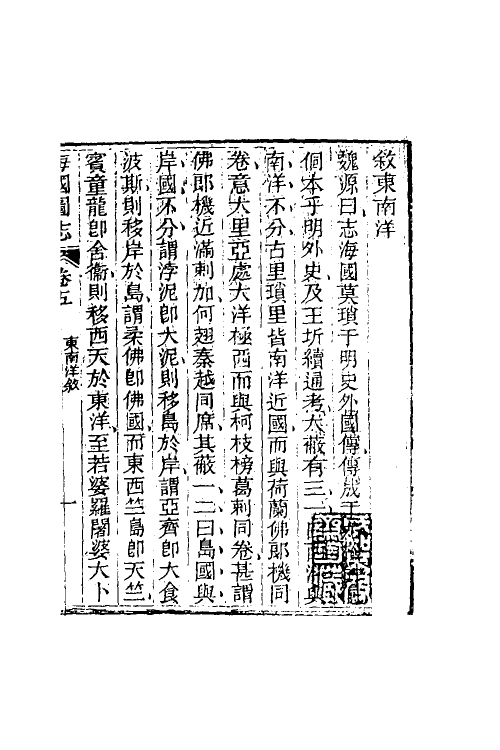 敘東南洋
魏源曰志海國莫瑣于明史外國傳傳成于
侗本乎明外史及王圻續通考大蔽有三一曰西洋與
南洋不分古里瑣里皆南洋近國而與荷蘭佛郎機同
卷意大里亞處大洋極西而與柯枝榜葛剌同卷甚謂
佛郎機近滿剌加何翅秦越同席其蔽一二曰島國與
岸國不分謂浡泥卽大泥則移島於岸謂亞齊卽大食
波斯則移岸於島謂柔佛卽佛國而東西竺島卽天竺
賓童龍卽舍衞則移西天於東洋至若婆羅闍婆大卜
海國圖志 卷五 東南洋敘 一